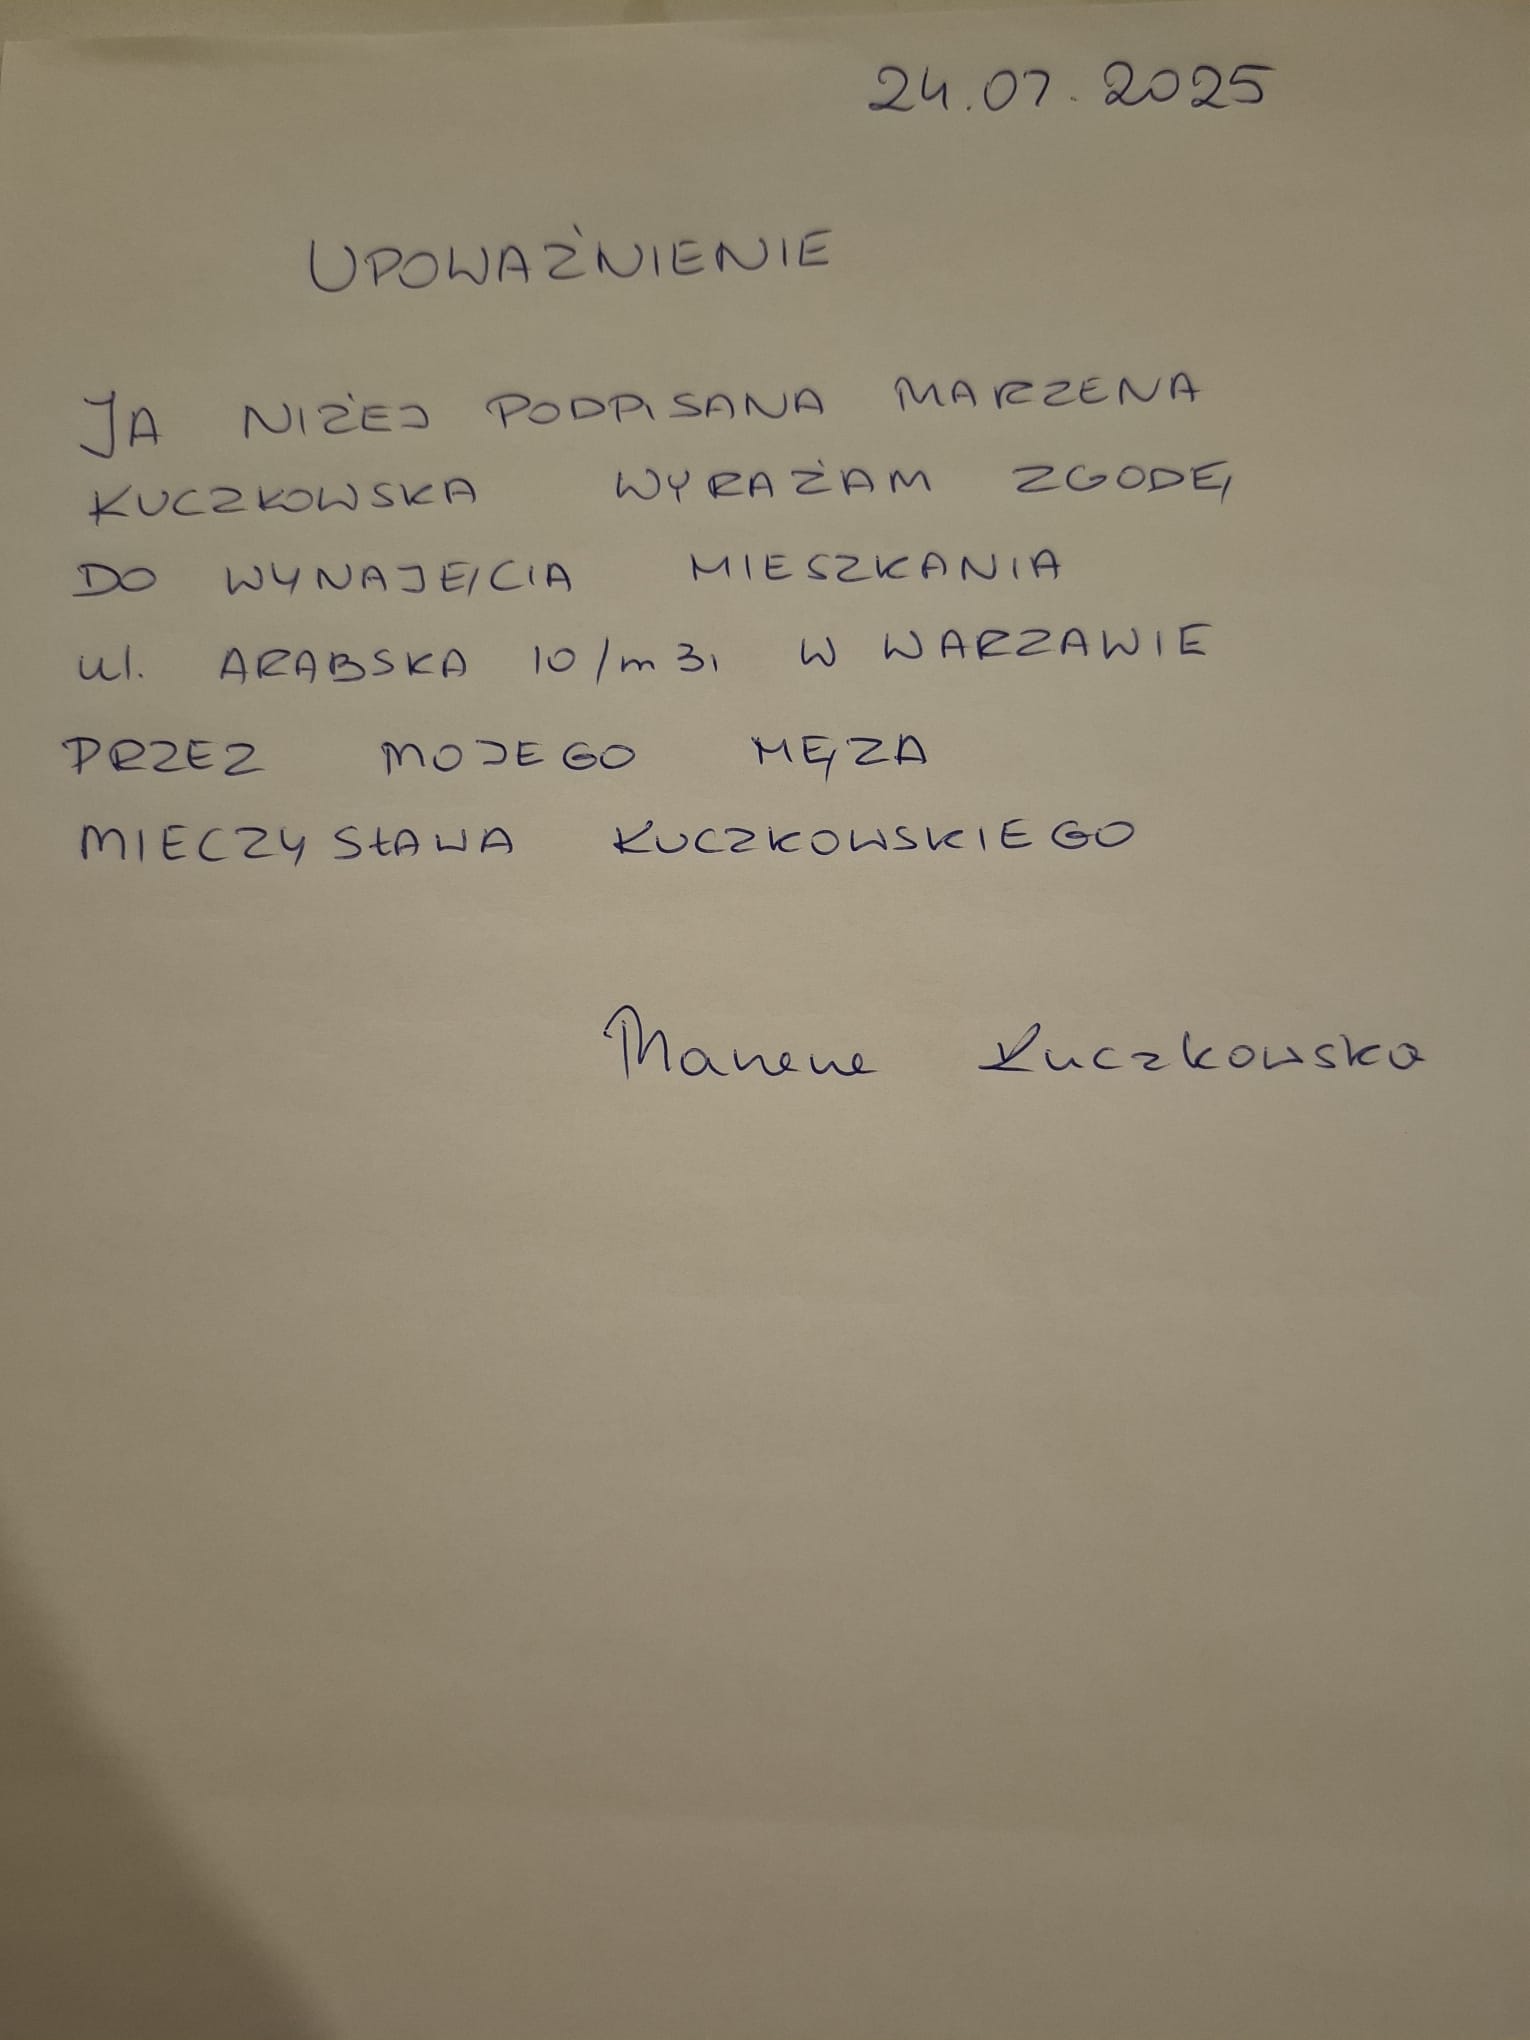 24.07.2025
UPOWAŻNIENIE
JA NIŻEJ PODPISANA MARZENA
KUCZKOWSKA WYRAŻAM ZGODĘ
DO WYNAJĘCIA MIESZKANIA
ul. ARABSKA 10/m 31 W WARZAWIE
PRZEZ MOJEGO MĘZA
MIECZYSŁAWA KUCZKOWSKIEGO
Marzena Kuczkowska